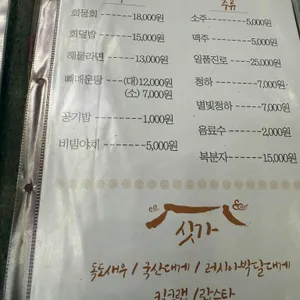 주류
회물회 18,000원
소주 5,000원
회덮밥 15,000원
맥주 5,000원
해물라면 13,000원
일품진로 25,000원
뼈매운탕 (대)12,000원
(소) 7,000원
청하 7,000원
별빛청하 7,000원
공기밥 1,000원
음료수 2,000원
비빔야채 5,000원
복분자 15,000원
싯가
독도새우 / 국산대게 / 러시아박달대게
킹크랩 / 랍스타